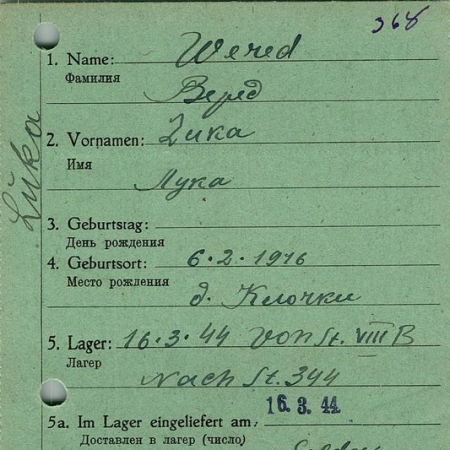 368
1. Name: Wered
Фамилия
Веред
2. Vornamen: Luka
Имя
Лука
Luka
3. Geburtstag:
День рождения
4. Geburtsort: 6.2.1916
Место рождения
д. Клочки
5. Lager: 16.3.44 von St. VIII B
Лагерь
nach St. 344
16. 3. 44
5a. Im Lager eingeliefert am:
Доставлен в лагерь (число)